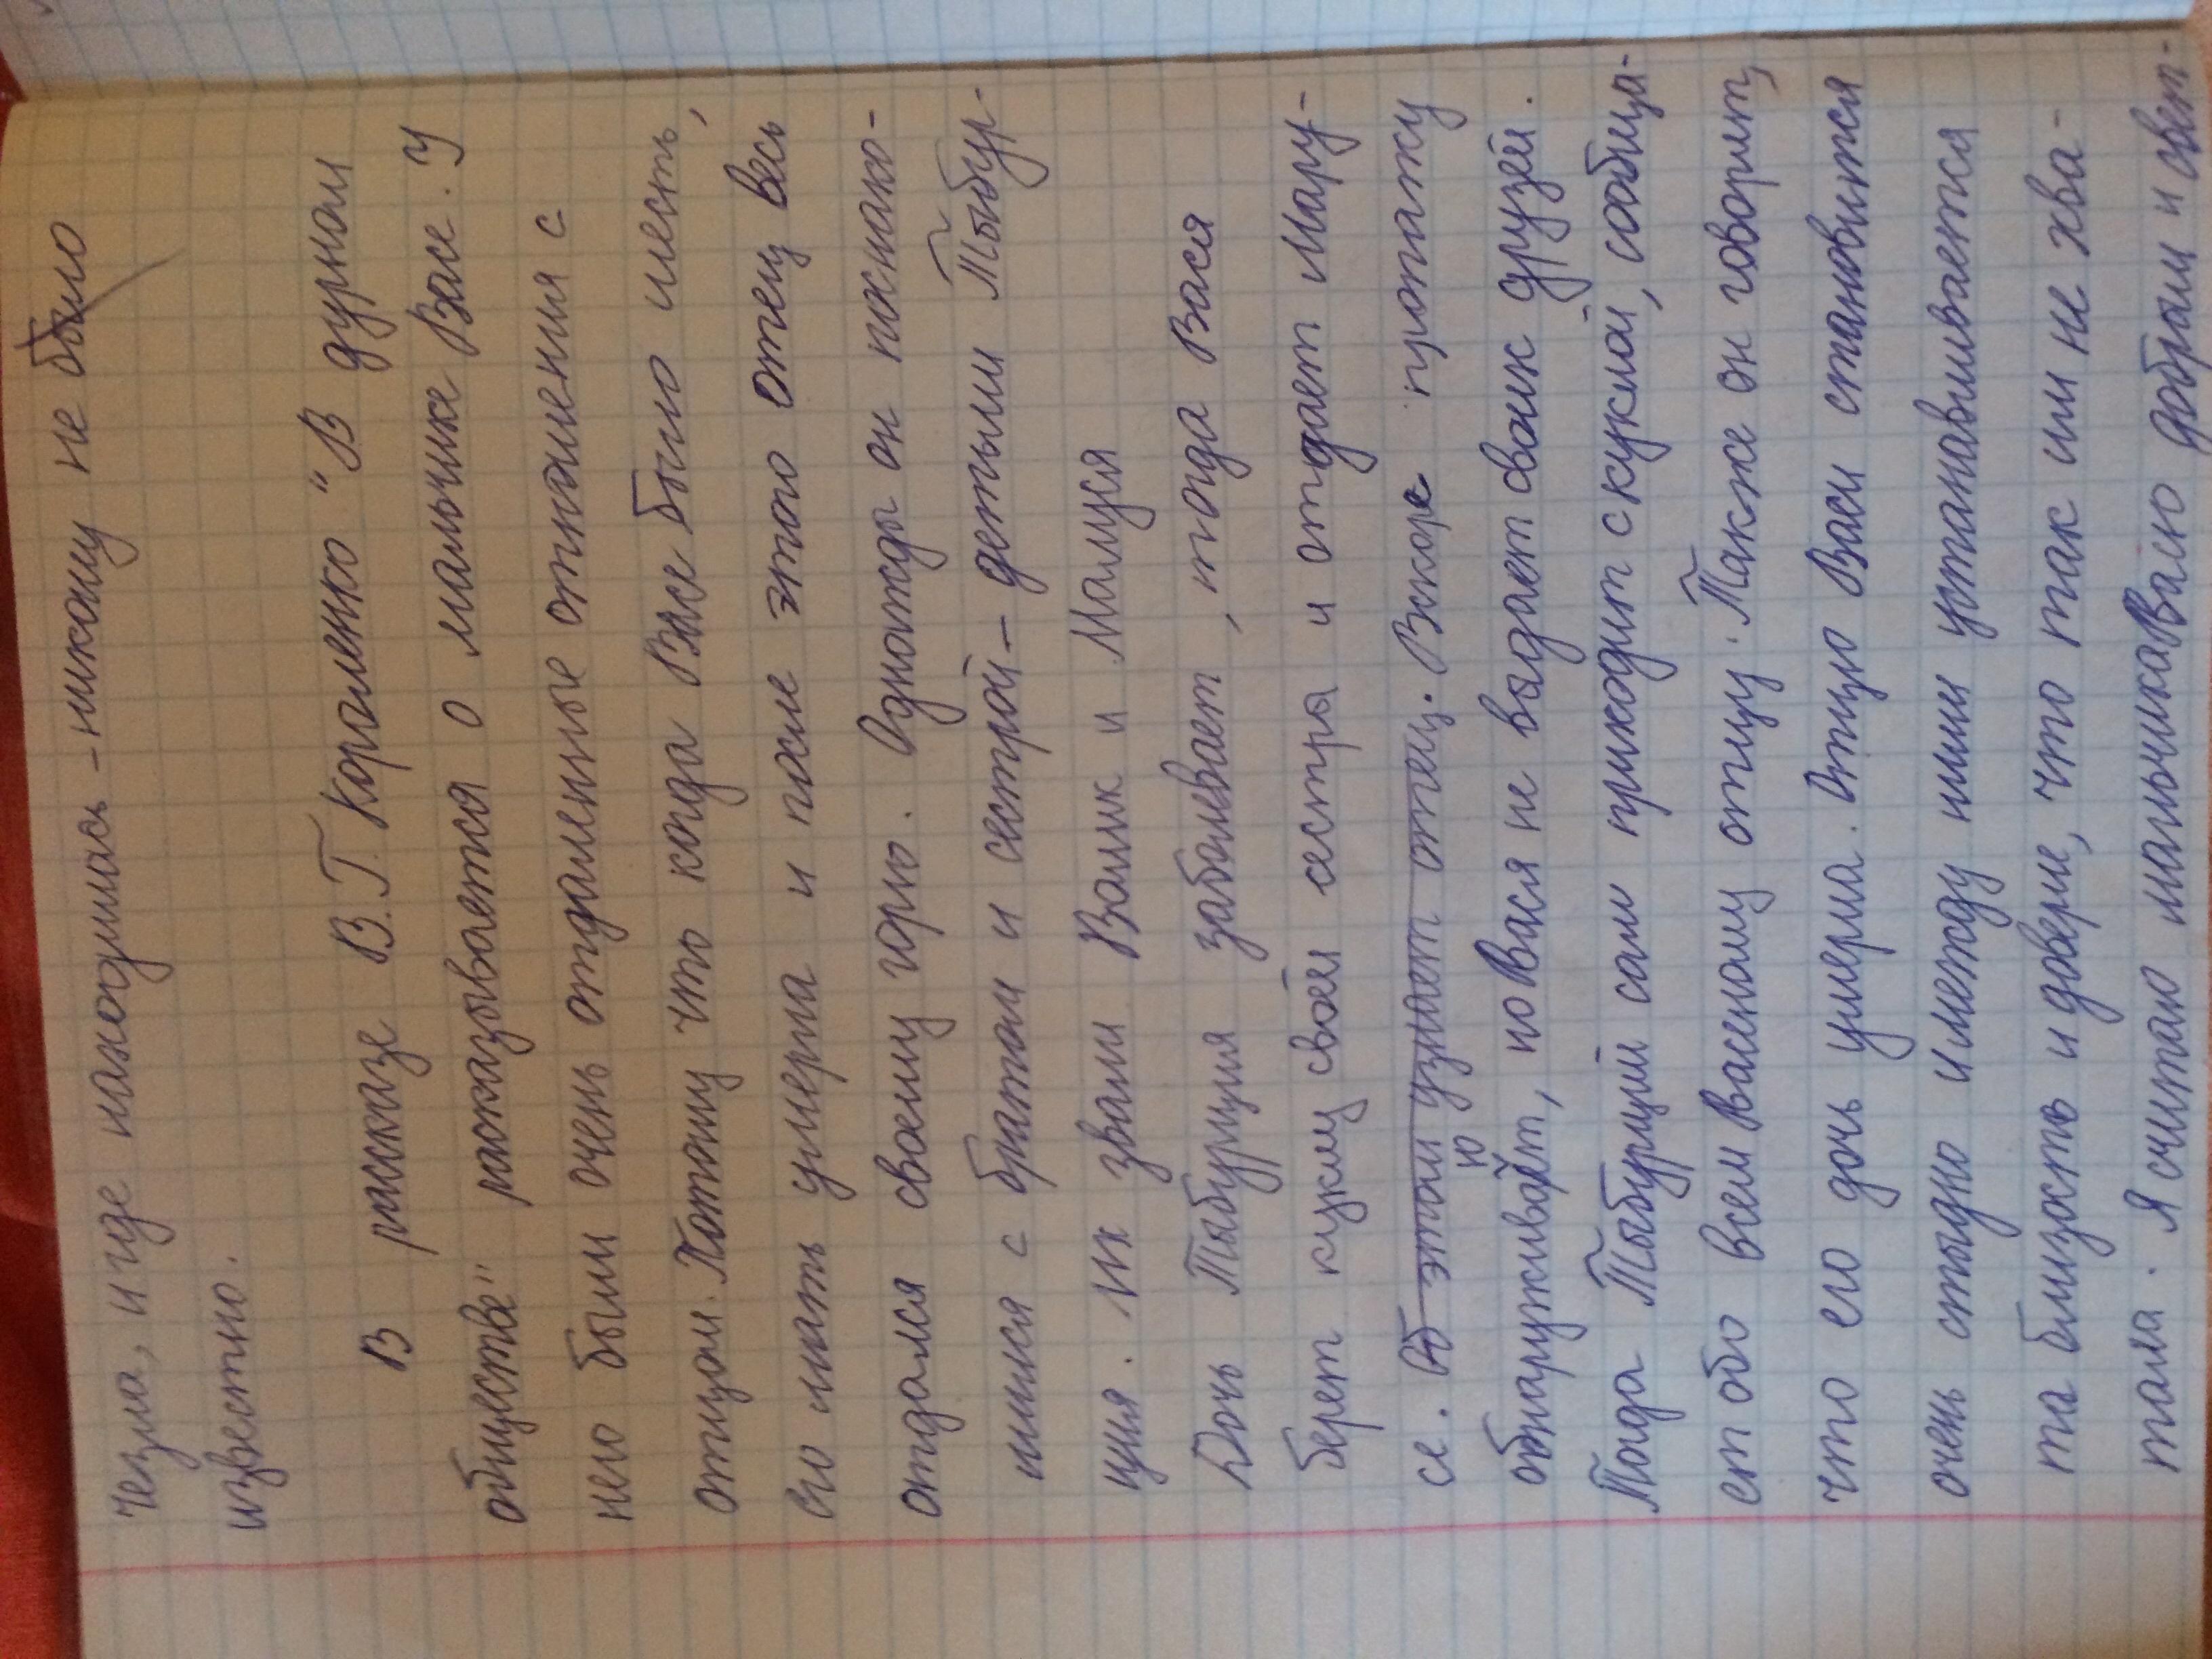 чезла, и где находилась - никому не было
известно.
В рассказе В.Г. Короленко "В дурном
обществе" рассказывается о мальчике Васе. У
него были очень отдаленные отношения с
отцом. Потому что когда Васе было шесть,
его мать умерла и после этого отец весь
отдался своему горю. Однажды он познако-
мился с братом и сестрой - детьми Тыбур-
ция. Их звали Валик и Маруся
Дочь Тыбурция заболевает, тогда Вася
берет куклу своей сестры и отдает Мару-
се. Об этом узнает отец. Вскоре пропажу
обнаруживают, но Вася не выдает своих друзей.
Тогда Тыбурций сам приходит с куклой, сообща-
ет обо всем Васеному отцу. Также он говорит,
что его дочь умерла. Отцу Васи становится
очень стыдно и между ними устанавливается
та близость и доверие, что так им не хва-
тала. Я считаю мальчика Васю добрым и свет-